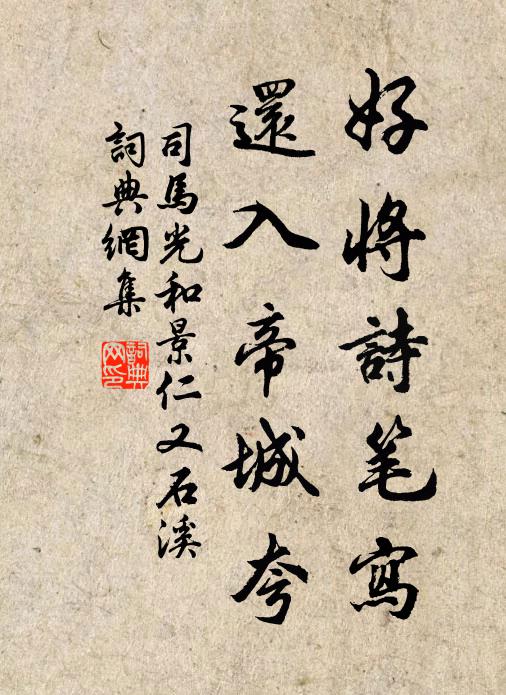 好將詩笔寫
還入帝城夸
司馬光和景仁又石溪
詞典網集
詞典网印